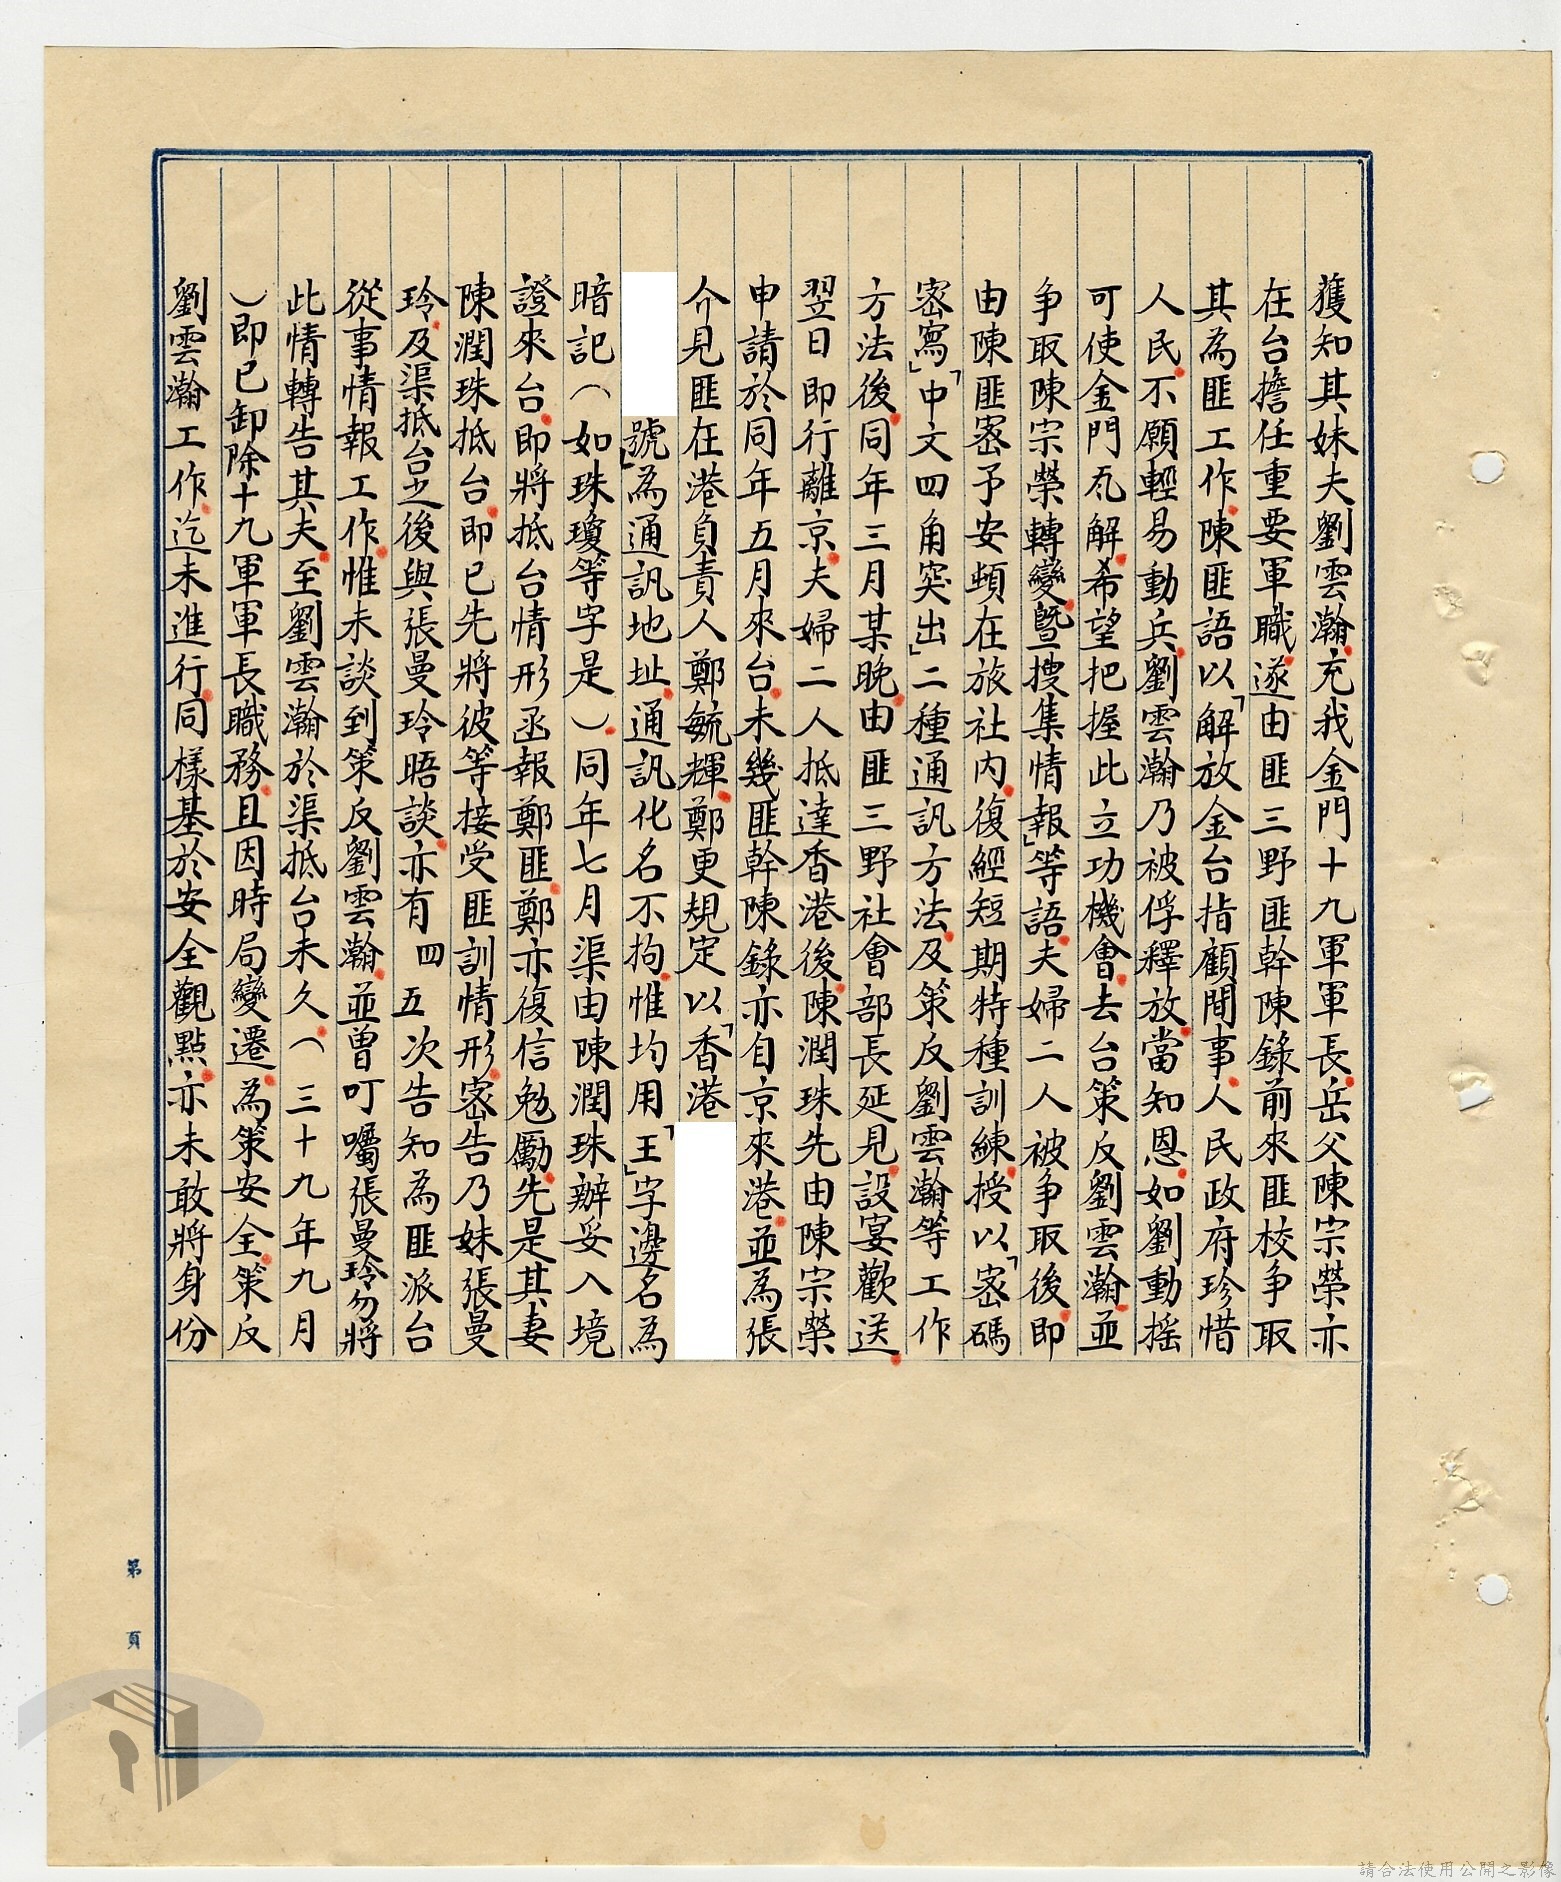 獲知其妹夫劉雲瀚充我金門十九軍軍長岳父陳宗榮亦
在台擔任重要軍職遂由匪三野匪幹陳錄前來匪校爭取
其為匪工作陳匪語以「解放金台指顧間事人民政府珍惜
人民不願輕易動兵劉雲瀚乃被俘釋放當知恩如劉動搖
可使金門瓦解希望把握此立功機會去台策反劉雲瀚並
爭取陳宗榮轉變暨搜集情報」等語夫婦二人被爭取後即
由陳匪密予安頓在旅社內復經短期特種訓練授以「密碼
密寫」「中文四角突出」二種通訊方法及策反劉雲瀚等工作
方法後同年三月某晚由匪三野社會部長延見設宴歡送
翌日即行離京夫婦二人抵達香港後陳潤珠先由陳宗榮
申請於同年五月來台未幾匪幹陳錄亦自京來港並為張
介見匪在港負責人鄭毓輝鄭更規定以「香港
號」為通訊地址通訊化名不拘惟均用「王」字邊名為
暗記（如珠瓊等字是）同年七月渠由陳潤珠辦妥入境
證來台即將抵台情形函報鄭匪鄭亦復信勉勵先是其妻
陳潤珠抵台即已先將彼等接受匪訓情形密告乃妹張曼
玲及渠抵台之後與張曼玲晤談亦有四五次告知為匪派台
從事情報工作惟未談到策反劉雲瀚並曾叮囑張曼玲勿將
此情轉告其夫至劉雲瀚於渠抵台未久（三十九年九月
）即已卸除十九軍軍長職務且因時局變遷為策安全策反
劉雲瀚工作迄未進行同樣基於安全觀點亦未敢將身份
第　頁
請合法使用公開之影像